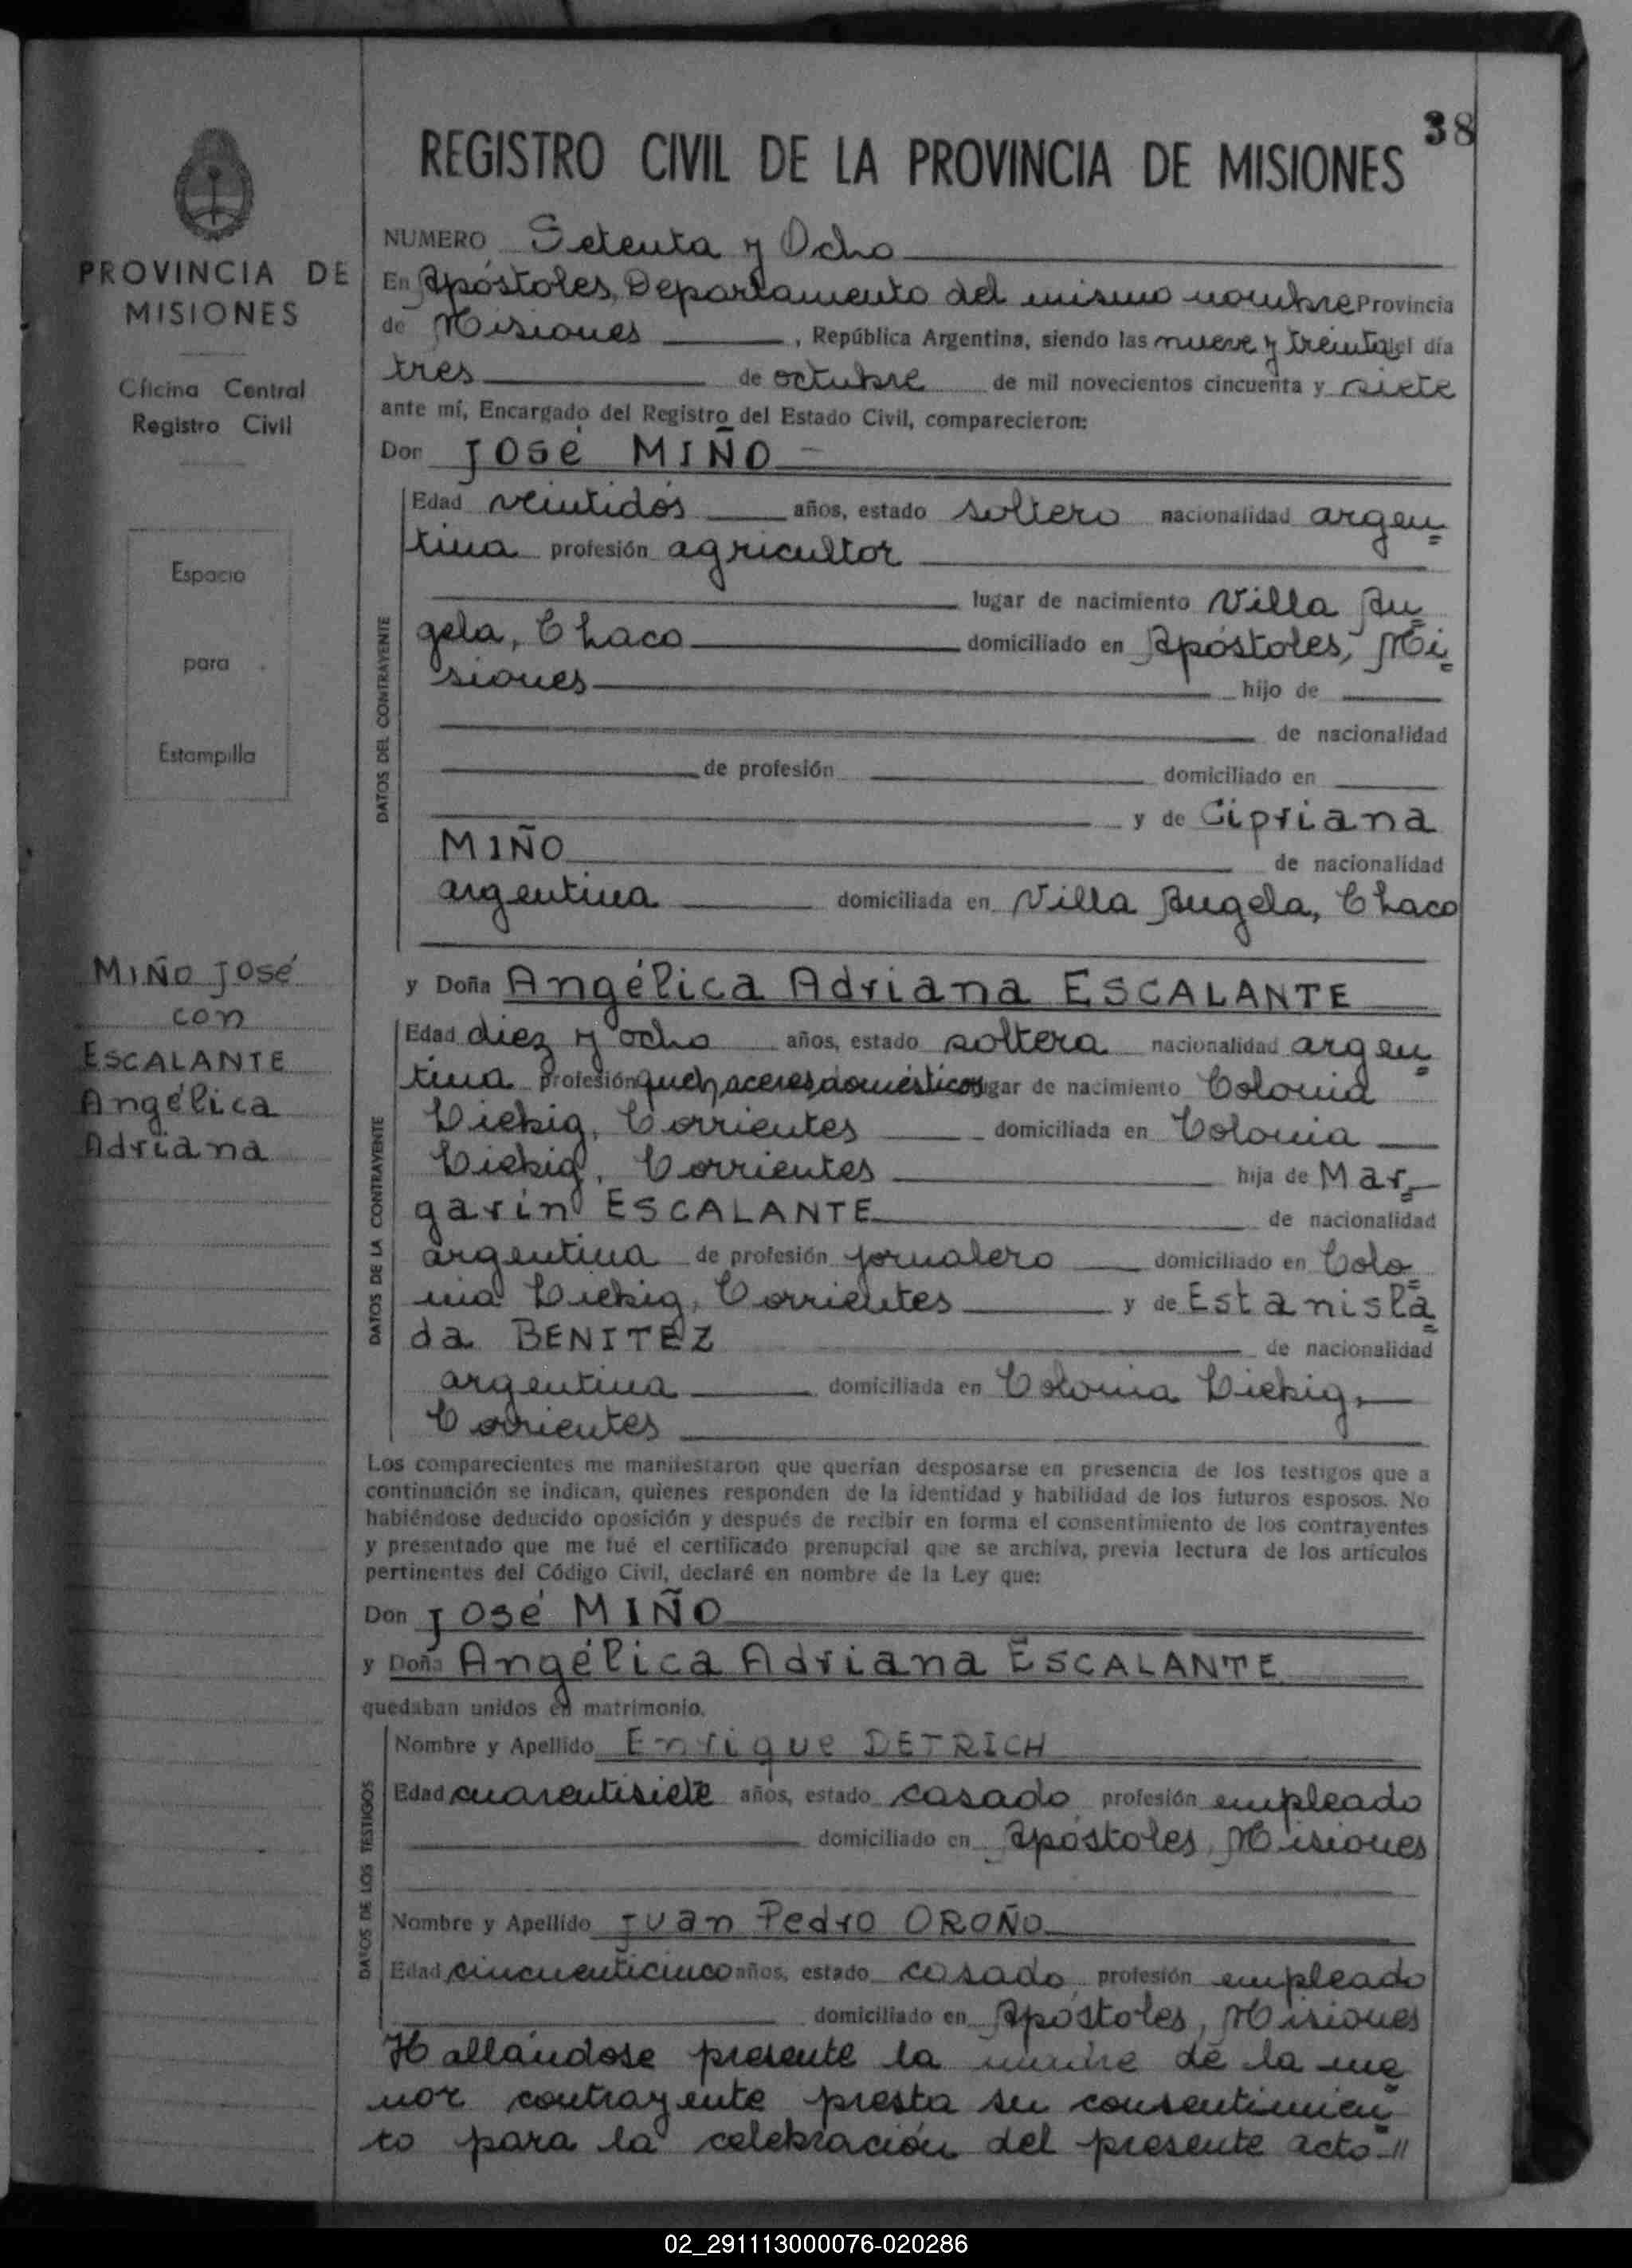 38
REGISTRO CIVIL DE LA PROVINCIA DE MISIONES
PROVINCIA DE
MISIONES
Oficina Central
Registro Civil
Espacio
para
Estampilla
MIÑO JOSé
con
ESCALANTE
Angélica
Adriana
NUMERO Setenta y Ocho
En Apóstoles, Departamento del mismo nombre Provincia
de Misiones, República Argentina, siendo las nueve y treinta del día
tres de octubre de mil novecientos cincuenta y siete
ante mí, Encargado del Registro del Estado Civil, comparecieron:
Don JOSé MIÑO
DATOS DEL CONTRAYENTE
Edad veintidós años, estado soltero nacionalidad argen=
tina profesión agricultor
lugar de nacimiento Villa An=
gela, Chaco domiciliado en Apóstoles, Mi=
siones hijo de
de nacionalidad
de profesión domiciliado en
y de Cipriana
MIÑO de nacionalidad
argentina domiciliada en Villa Angela, Chaco
y Doña Angélica Adriana ESCALANTE
DATOS DE LA CONTRAYENTE
Edad diez y ocho años, estado soltera nacionalidad argen=
tina profesión quehaceres domésticos lugar de nacimiento Colonia
Liebig, Corrientes domiciliada en Colonia
Liebig, Corrientes hija de Mar=
garin ESCALANTE de nacionalidad
argentina de profesión jornalero domiciliado en Colo=
nia Liebig, Corrientes y de Estanisla=
da BENITEZ de nacionalidad
argentina domiciliada en Colonia Liebig,
Corrientes
Los comparecientes me manifestaron que querían desposarse en presencia de los testigos que a
continuación se indican, quienes responden de la identidad y habilidad de los futuros esposos. No
habiéndose deducido oposición y después de recibir en forma el consentimiento de los contrayentes
y presentado que me fué el certificado prenupcial que se archiva, previa lectura de los artículos
pertinentes del Código Civil, declaré en nombre de la Ley que:
Don JOSé MIÑO
y Doña Angélica Adriana ESCALANTE
quedaban unidos en matrimonio.
DATOS DE LOS TESTIGOS
Nombre y Apellido Enrique DETRICH
Edad cuarentisiete años, estado casado profesión empleado
domiciliado en Apóstoles, Misiones
Nombre y Apellido Juan Pedro OROÑO
Edad cincuenticinco años, estado casado profesión empleado
domiciliado en Apóstoles, Misiones
Hallándose presente la madre de la me=
nor contrayente presta su consentimien=
to para la celebración del presente acto.//
02_291113000076-020286